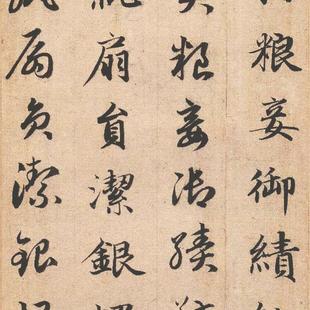 粮妾御績
粮妾御績
紈扇員潔銀
紈扇員潔銀